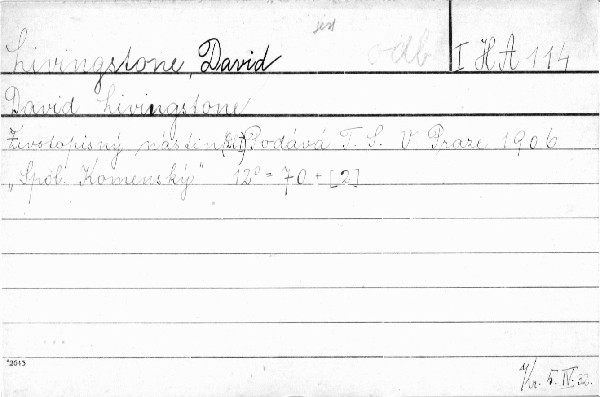 Livingstone, David odb I H A 114
David Livingstone
Životopisný nástin Podává T. S. V Praze 1906
„Spol. Komenský" 12° - 70 + [2]
*2613
Kr. 5. IV. 32.